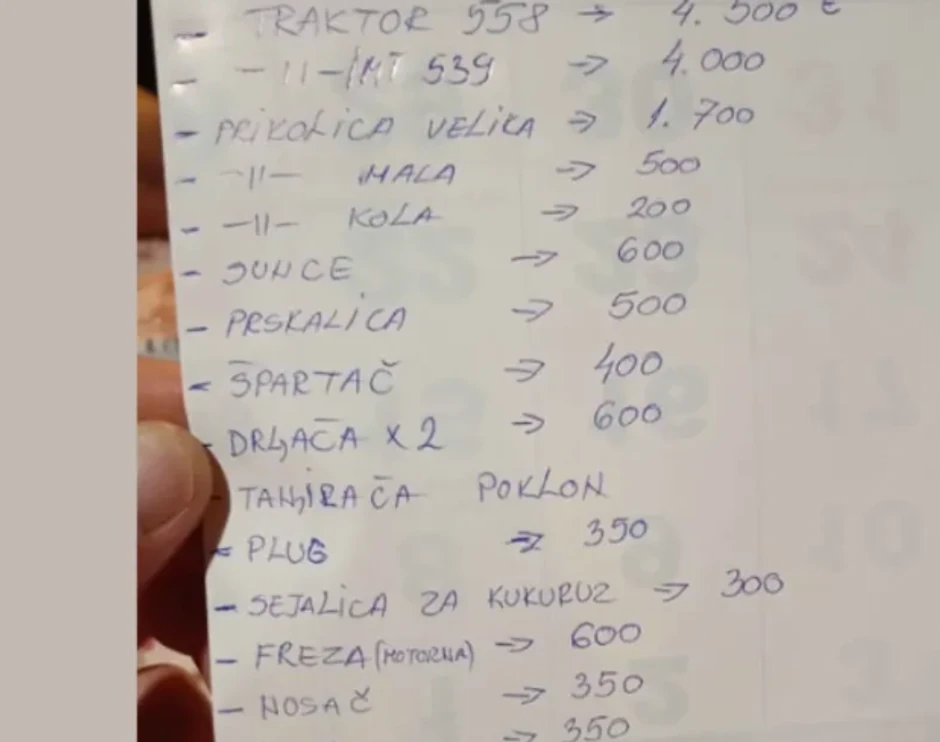 - TRAKTOR 558 → 4.500 €
- -11-IMT 539 → 4.000
- PRIKOLICA VELIKA → 1.700
- -11- MALA → 500
- -11- KOLA → 200
- SUNCE → 600
- PRSKALICA → 500
- ŠPARTAČ → 400
- DRLJAČA X 2 → 600
- TANJIRAČA POKLON
- PLUG → 350
- SEJALICA ZA KUKURUZ → 300
- FREZA (MOTORNA) → 600
- NOSAČ → 350
→ 350